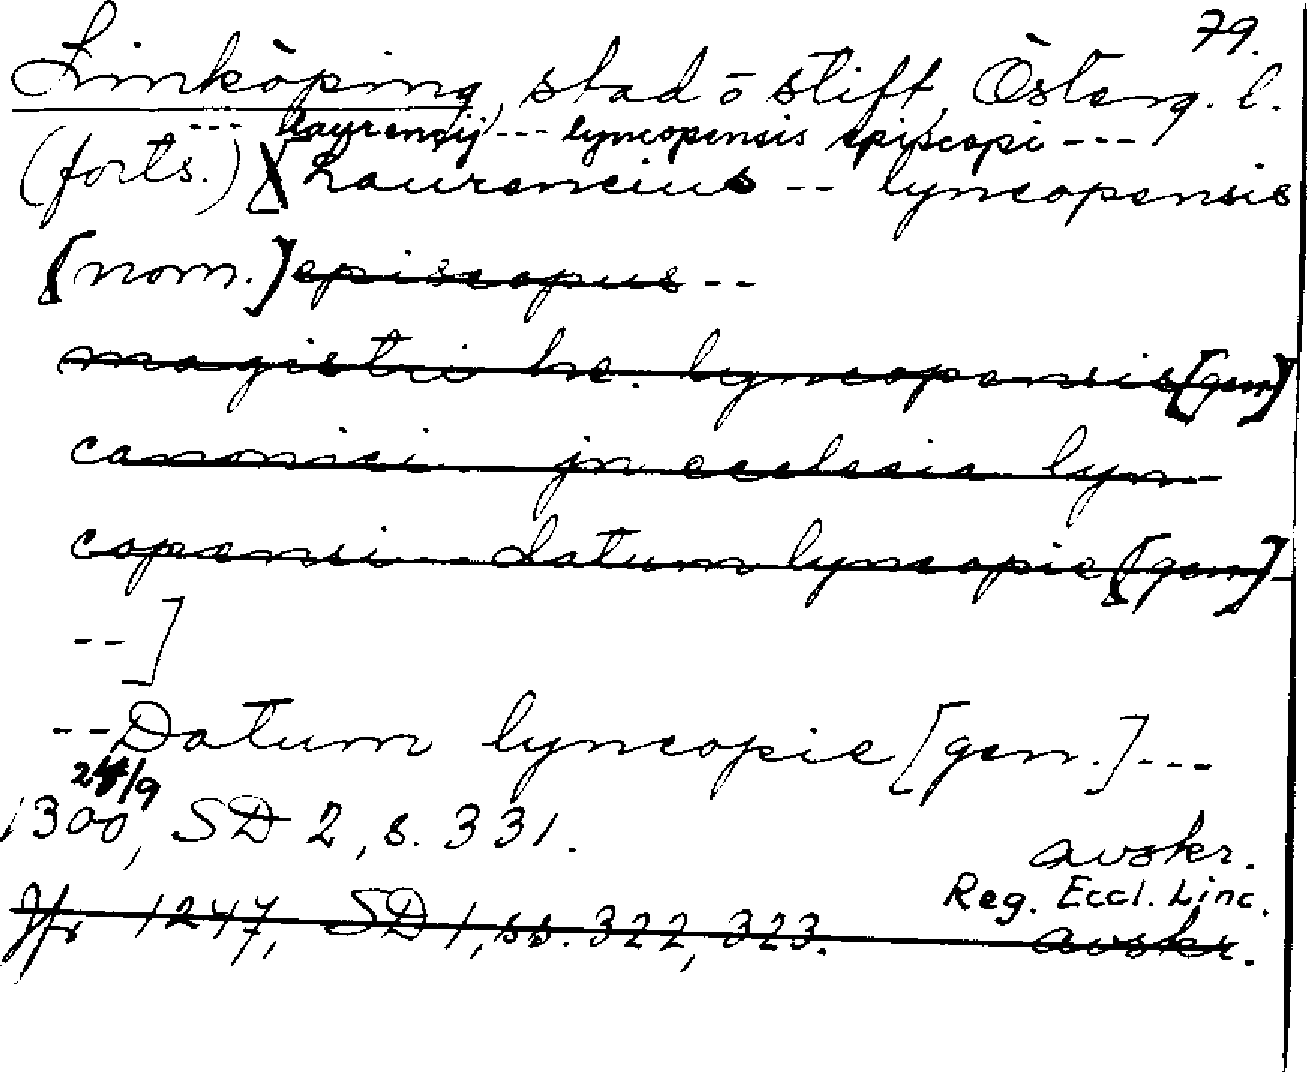 79.
Linköping, stad o stift, Österg. l.
--- laurencij --- lyncopensis episcopi ---
(forts.) [Laurencius -- lyncopensis
[nom.] episcopus --
magistri he. lyncopensis [gen]
canonici jn ecclesia lyn-
copensi -- datum lyncopie [gen] -
--]
--Datum lyncopie [gen.] ---
24/9
1300, SD 2, s. 331.
avskr.
Reg. Eccl. Linc.
Jfr 1247, SD 1, ss. 322, 323. avskr.